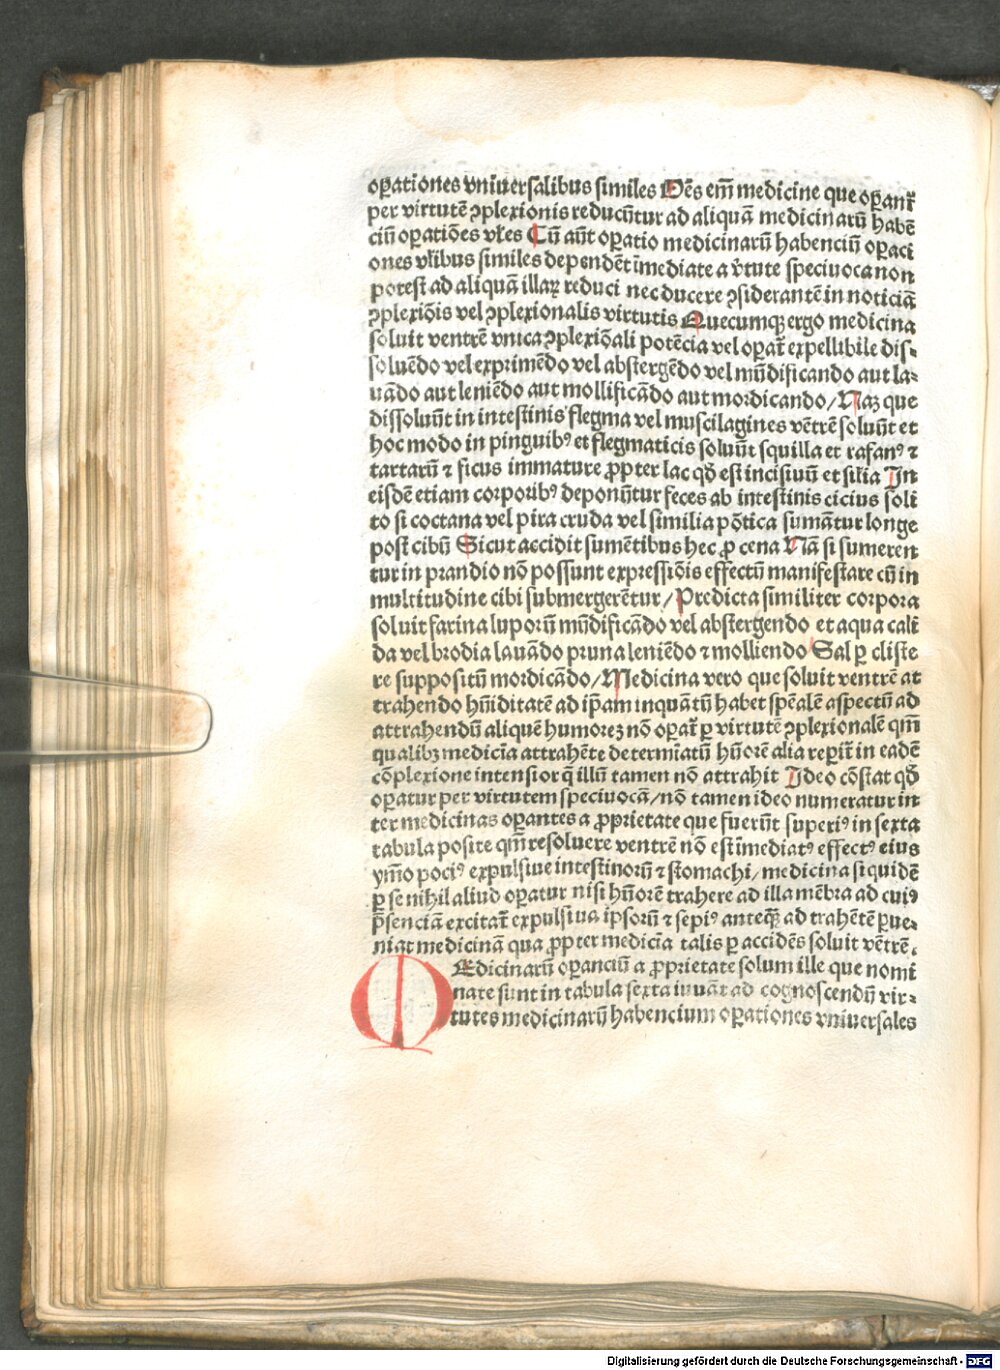 oꝑationes vniuersalibus similes Oēs em̄ medicine que oꝑant᷑
per virtutē ꝯplexionis reducūtur ad aliquā medicinarū habē
ciū oꝑatiōes vl̄es Cū aūt oꝑatio medicinarū habenciū oꝑaci
ones vl̄ibus similes dependēt īmediate a v̄tute speciuoca non
potest ad aliquā illaꝝ reduci nec ducere ꝯsiderantē in noticiā
ꝯplexiōis vel ꝯplexionalis virtutis Quecumqꝫ ergo medicina
soluit ventrē vnica ꝯplexiōali potēcia vel oꝑat᷑ expellibile dis⸗
soluēdo vel exprimēdo vel abstergēdo vel mūdificando aut la⸗
uādo aut leniēdo aut mollificādo aut mordicando/ Naꝫ que
dissoluūt in intestinis flegma vel muscilagines vētrē soluūt et
hoc modo in pinguibꝰ et flegmaticis soluūt squilla et rafanꝰ ⁊
tartarū ⁊ ficus immature ꝓpter lac qd̄ est incisiuū et silia In
eisdē etiam corporibꝰ deponūtur feces ab intestinis cicius soli
to si coctana vel pira cruda vel similia pōtica sumātur longe
post cibū Sicut accidit sumētibus hec ꝓ cena Nā si sumeren
tur in prandio nō possunt expressiōis effectū manifestare cū in
multitudine cibi submergerētur/ Predicta similiter corpora
soluit farina luporū mūdificādo vel abstergendo et aqua cali
da vel brodia lauādo pruna leniēdo ⁊ molliendo Sal ꝑ cliste
re suppositū mordicādo/ Medicina vero que soluit ventrē at
trahendo hūiditatē ad ip̄am inquātū habet sp̄ealē aspectū ad
attrahendū aliquē humoreꝫ nō oꝑat᷑ ꝑ virtutē ꝯplexionalē qm̄
qualibꝫ medicīa attrahēte determīatū hūorē alia reꝑit᷑ in eadē
cōplexione intensior q̄ illū tamen nō attrahit Ideo cōstat qd̄
oꝑatur per virtutem speciuocā/ nō tamen ideo numeratur in
ter medicinas oꝑantes a ꝓprietate que fuerūt superiꝰ in sexta
tabula posite qm̄ resoluere ventrē nō est īmediatꝰ effectꝰ eius
ymō pociꝰ expulsiue intestinorū ⁊ stomachi/ medicina siquidē
ꝑ se nihil aliud oꝑatur nisi hūorē trahere ad illa mēbra ad cuiꝰ
p̄senciā excitat᷑ expulsiua ipsorū ⁊ sepiꝰ anteqꝫ ad trahētē ꝑue⸗
niat medicinā qua ꝓpter medicīa talis ꝑ accidēs soluit vētrē.
MEdicinarū oꝑanciū a ꝓprietate solum ille que nomi
nate sunt in tabula sexta iuuāt ad cognoscendū vir⸗
tutes medicinarū habencium oꝑationes vniuersales
Digitalisierung gefördert durch die Deutsche Forschungsgemeinschaft - DFG